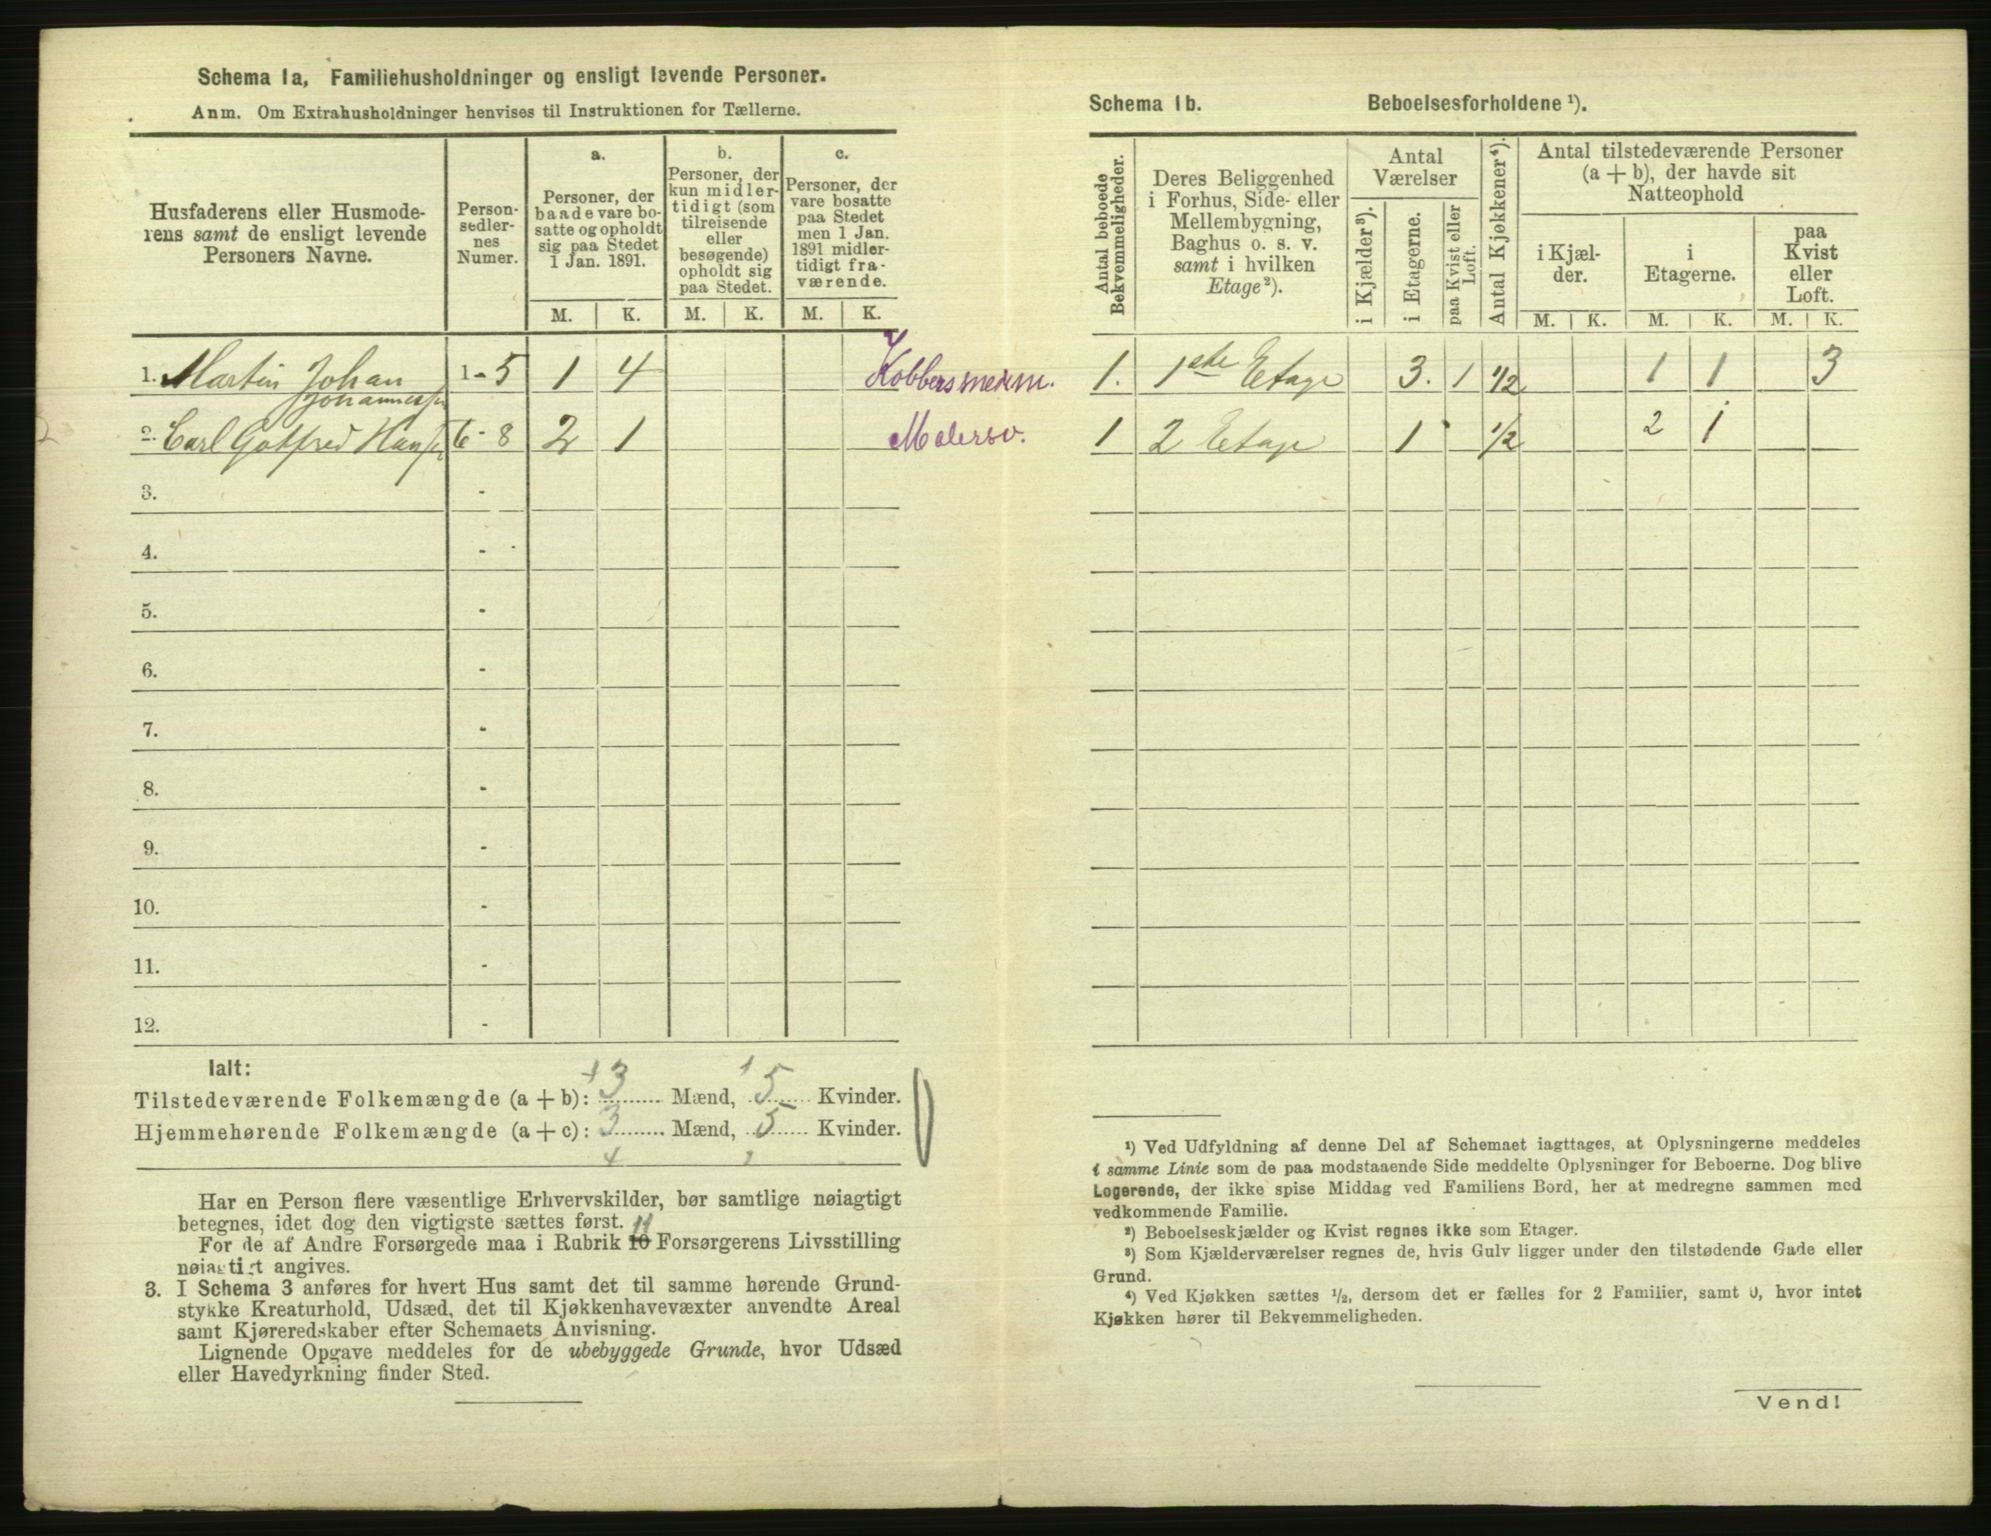 Schema 1a, Familiehusholdninger og ensligt levende Personer.
Anm. Om Extrahusholdninger henvises til Instruktionen for Tællerne.
Husfaderens eller Husmode-
rens samt de ensligt levende
Personers Navne.
Person-
sedler-
nes
Numer.
a.
Personer, der
baade vare bo-
satte og opholdt
sig paa Stedet
1 Jan. 1891.
b.
Personer, der
kun midler-
tidigt (som
tilreisende
eller
besøgende)
opholdt sig
paa Stedet.
c.
Personer, der
vare bosatte
paa Stedet
men 1 Jan.
1891 midler-
tidigt fra-
værende.
M. K. M. K. M. K.
1. Martin Johan Johannessen 1-5 1 4 Kobbersmedm.
2. Carl Gotfred Hansen 6-8 2 1 Malersv.
3. -
4. -
5. -
6. -
7. -
8. -
9. -
10. -
11. -
12. -
Ialt:
Tilstedeværende Folkemængde (a + b): 3 Mænd, 5 Kvinder.
Hjemmehørende Folkemængde (a + c): 3 Mænd, 5 Kvinder.
Har en Person flere væsentlige Erhvervskilder, bør samtlige nøiagtigt
betegnes, idet dog den vigtigste sættes først.
11
For de af Andre Forsørgede maa i Rubrik 10 Forsørgerens Livsstilling
nøiagtigt angives.
3. I Schema 3 anføres for hvert Hus samt det til samme hørende Grund-
stykke Kreaturhold, Udsæd, det til Kjøkkenhavevæxter anvendte Areal
samt Kjøreredskaber efter Schemaets Anvisning.
Lignende Opgave meddeles for de ubebyggede Grunde, hvor Udsæd
eller Havedyrkning finder Sted.
Schema 1b. Beboelsesforholdene ¹).
Antal beboede
Bekvemmeligheder.
Deres Beliggenhed
i Forhus, Side- eller
Mellembygning,
Baghus o. s. v.
samt i hvilken
Etage²).
Antal
Værelser
i Kjælder³).
i Etagerne.
paa Kvist eller
Loft.
Antal Kjøkkener⁴).
Antal tilstedeværende Personer
(a + b), der havde sit
Natteophold
i Kjæl-
der.
i
Etagerne.
paa
Kvist
eller
Loft.
M. K. M. K. M. K.
1. 1ste Etage 3. 1 1/2 1 1 3
1 2 Etage 1 1/2 2 1
¹) Ved Udfyldning af denne Del af Schemaet iagttages, at Oplysningerne meddeles
i samme Linie som de paa modstaaende Side meddelte Oplysninger for Beboerne. Dog blive
Logerende, der ikke spise Middag ved Familiens Bord, her at medregne sammen med
vedkommende Familie.
²) Beboelseskjælder og Kvist regnes ikke som Etager.
³) Som Kjælderværelser regnes de, hvis Gulv ligger under den tilstødende Gade eller
Grund.
⁴) Ved Kjøkken sættes ½, dersom det er fælles for 2 Familier, samt 0, hvor intet
Kjøkken hører til Bekvemmeligheden.
Vend!